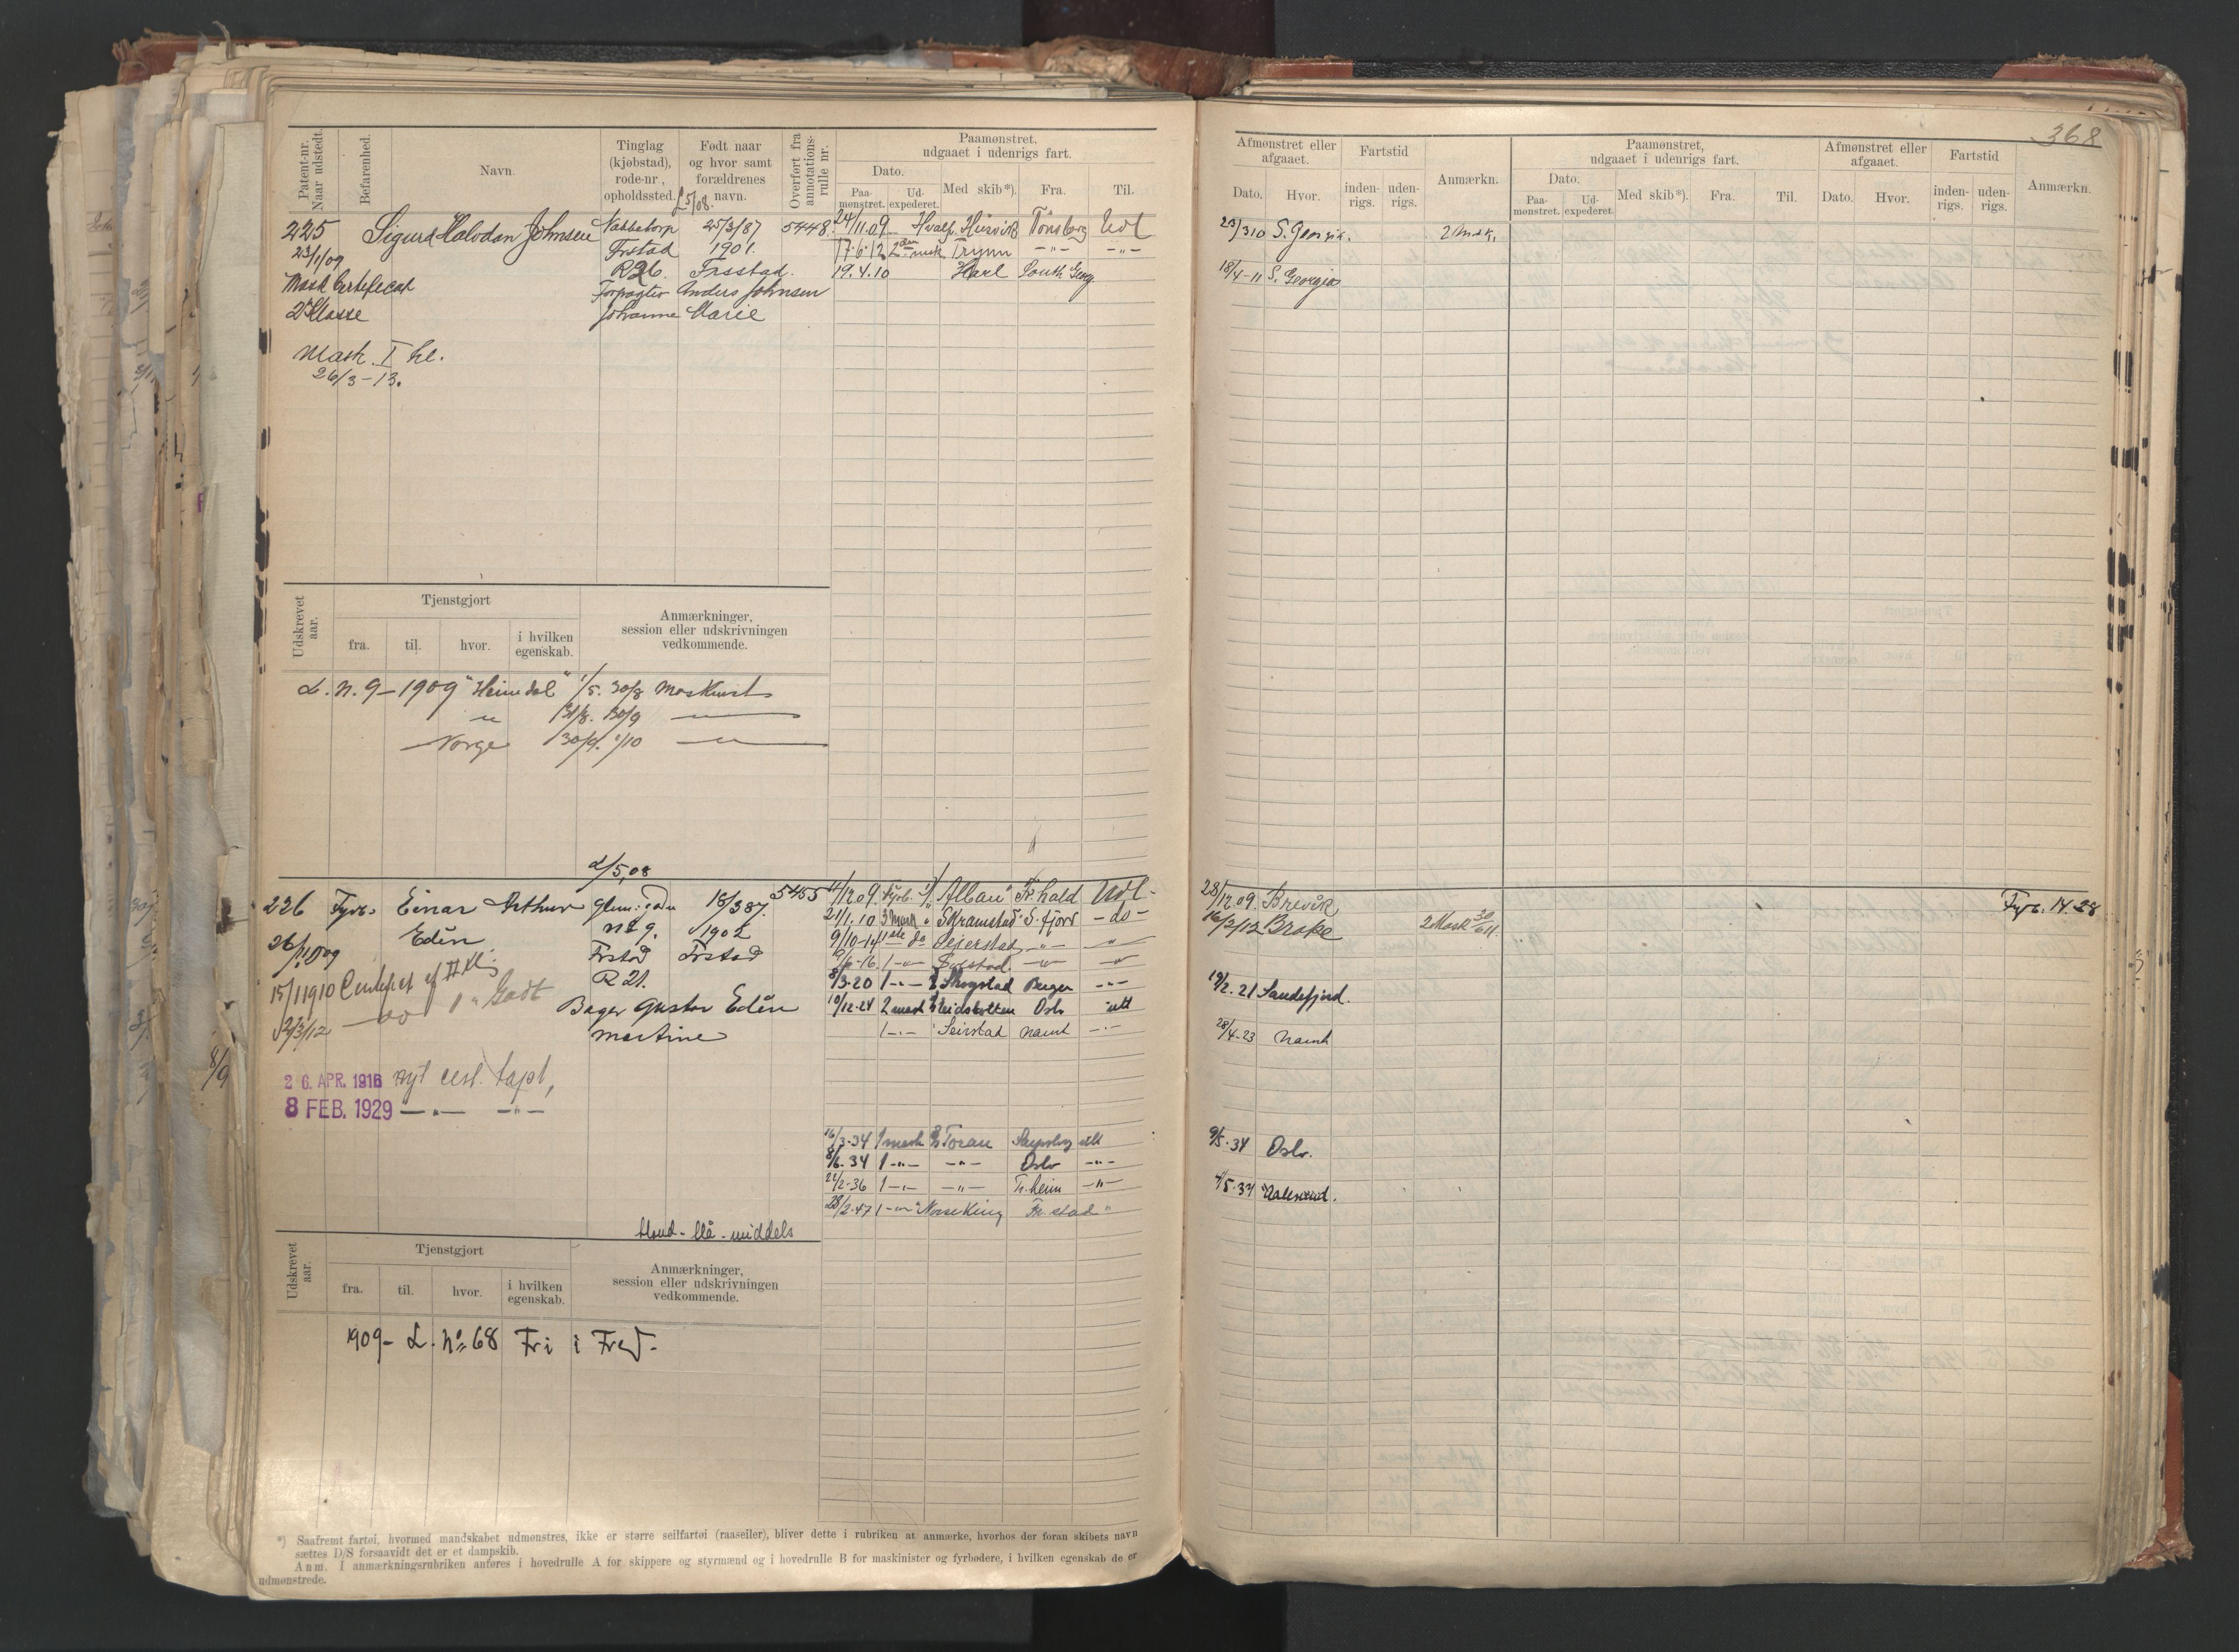 368
Patent-nr. Naar udstedt.
Befarenhed.
Navn.
Tinglag (kjøbstad), rode-nr., opholdssted.
Født naar og hvor samt forældrenes navn.
Overført fra annotations-rulle nr.
Paamønstret, udgaaet i udenrigs fart.
Dato.
Paa-mønstret.
Ud-expederet.
Med skib*).
Fra.
Til.
Afmønstret eller afgaaet.
Dato.
Hvor.
Fartstid
inden-rigs.
uden-rigs.
Anmærkn.
Paamønstret, udgaaet i udenrigs fart.
Dato.
Paa-mønstret.
Ud-expederet.
Med skib*).
Fra.
Til.
Afmønstret eller afgaaet.
Dato.
Hvor.
Fartstid
inden-rigs.
uden-rigs.
Anmærkn.
225 Sigurd Halvdan Johnsen Nabbetorp 25/3/87 5448 24/11.09 Hvalf. Husvik Tönsberg Udl
23/1/09 Frstad 1901. 17.6.12 Trym -"- -"-
Mask Certificat R26. Frsstad. 19.4.10 Karl South Georg.
2 Klasse Forpagter Anders Johnsen
Johanne Marie
Mask. I kl.
26/3-13.
S. Georgia. 2 Mask.
18/4-11 S. Georgia
Udskrevet aar.
Tjenstgjort
fra.
til.
hvor.
i hvilken egenskab.
Anmærkninger, session eller udskrivningen vedkommende.
L. n. 9-1909 "Heimdal" 1/5. 30/8
" 31/8. 30/9 "
Norge 30/9. "
226 Fyrb. Einar Arthur 18/3 87. 5455 Fyrb. "Alban" Fr.hald Udl-
26/11 09 Edén n: 9. 1902 21/1.10 3 Mask " Skramstad S. fjord -do-
15/11910 Frstad Frstad 9/10-14 Sejerstad -"- "
2/3/12 R 21. -"- "
Bager Gustav Edén 8/3-20 1-"- Skogstad Bergen -"-
Martine 10/12-24 2 mask Oslo utl
1-"- Seirstad Namt -"-
26. APR. 1916 nyt cert. tapt,
8 FEB. 1929 -"- -"-
16/3-34 1 mask Toran Sarpsborg utl
8/6-34 1-"- -"- Oslo -"-
22/2-36 1-"- -"- Tr.heim -"-
28/2-47 1-"- "Norse King Fr. stad "
28/12.09 Brevik Fyrb. 14.28
16/2/12 Brake 2 Mask
19/2.21 Sandefjord.
28/4-23 Namt
9/5.34 Oslo.
4/5.37 Aalesund.
blond - blå - middels
Udskrevet aar.
Tjenstgjort
fra.
til.
hvor.
i hvilken egenskab.
Anmærkninger, session eller udskrivningen vedkommende.
1909- L. No 68 Fri i Fred.
*) Saafremt fartøi, hvormed mandskabet udmønstres, ikke er større seilfartøi (raaseiler), bliver dette i rubriken at anmærke, hvorhos der foran skibets navn
sættes D/S forsaavidt det er et dampskib.
Anm. I anmærkningsrubriken anføres i hovedrulle A for skippere og styrmænd og i hovedrulle B for maskinister og fyrbødere, i hvilken egenskab de er
udmønstrede.